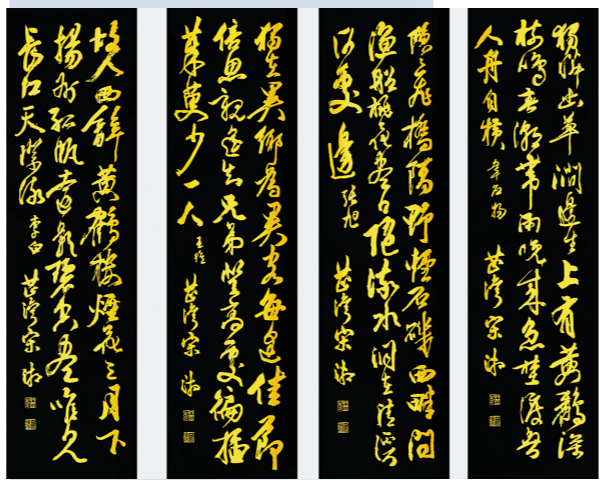 獨憐幽草澗邊生上有黄鸝深
樹鳴春潮帶雨晚來急野渡無
人舟自横 韋應物 芷灣宋湘
隱隱飛橋隔野煙石磯西畔問
漁船桃花盡日隨流水洞在清溪
何處邊 張旭 芷灣宋湘
獨在異鄉為異客每逢佳節
倍思親遙知兄弟登高處徧插
茱萸少一人 王維 芷灣宋湘
故人西辭黄鶴樓煙花三月下
揚州孤帆遠影碧空盡唯見
長江天際流 李白 芷灣宋湘